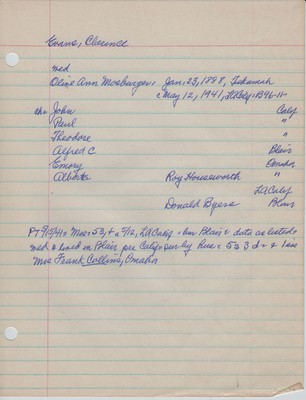 Evans, Clarence
md
Olive Ann Mosburger: Jan, 23, 1898, Tekamah
May 12, 1941, LACalif: B46-11-
ch= John Calif
Paul "
Theodore "
Alfred C. Blair
Emory Omaha
Alberta Roy Houseworth
LaCalif
Donald Byers Blair
PT 9/5/41= Mos= 53, + a 5/12, LACalif = bur Blair= data as listed=
md & lived in Blair pre Calif= sur by Hus= 5s 3 d= & 1 sis
Mrs Frank Collins, Omaha